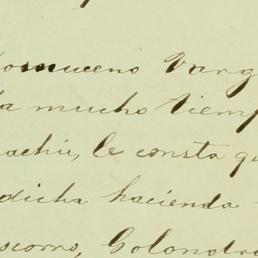 omuceno Varg
a mucho tiemp
achi, le consta qu
dicha hacienda
socorro, Golondr